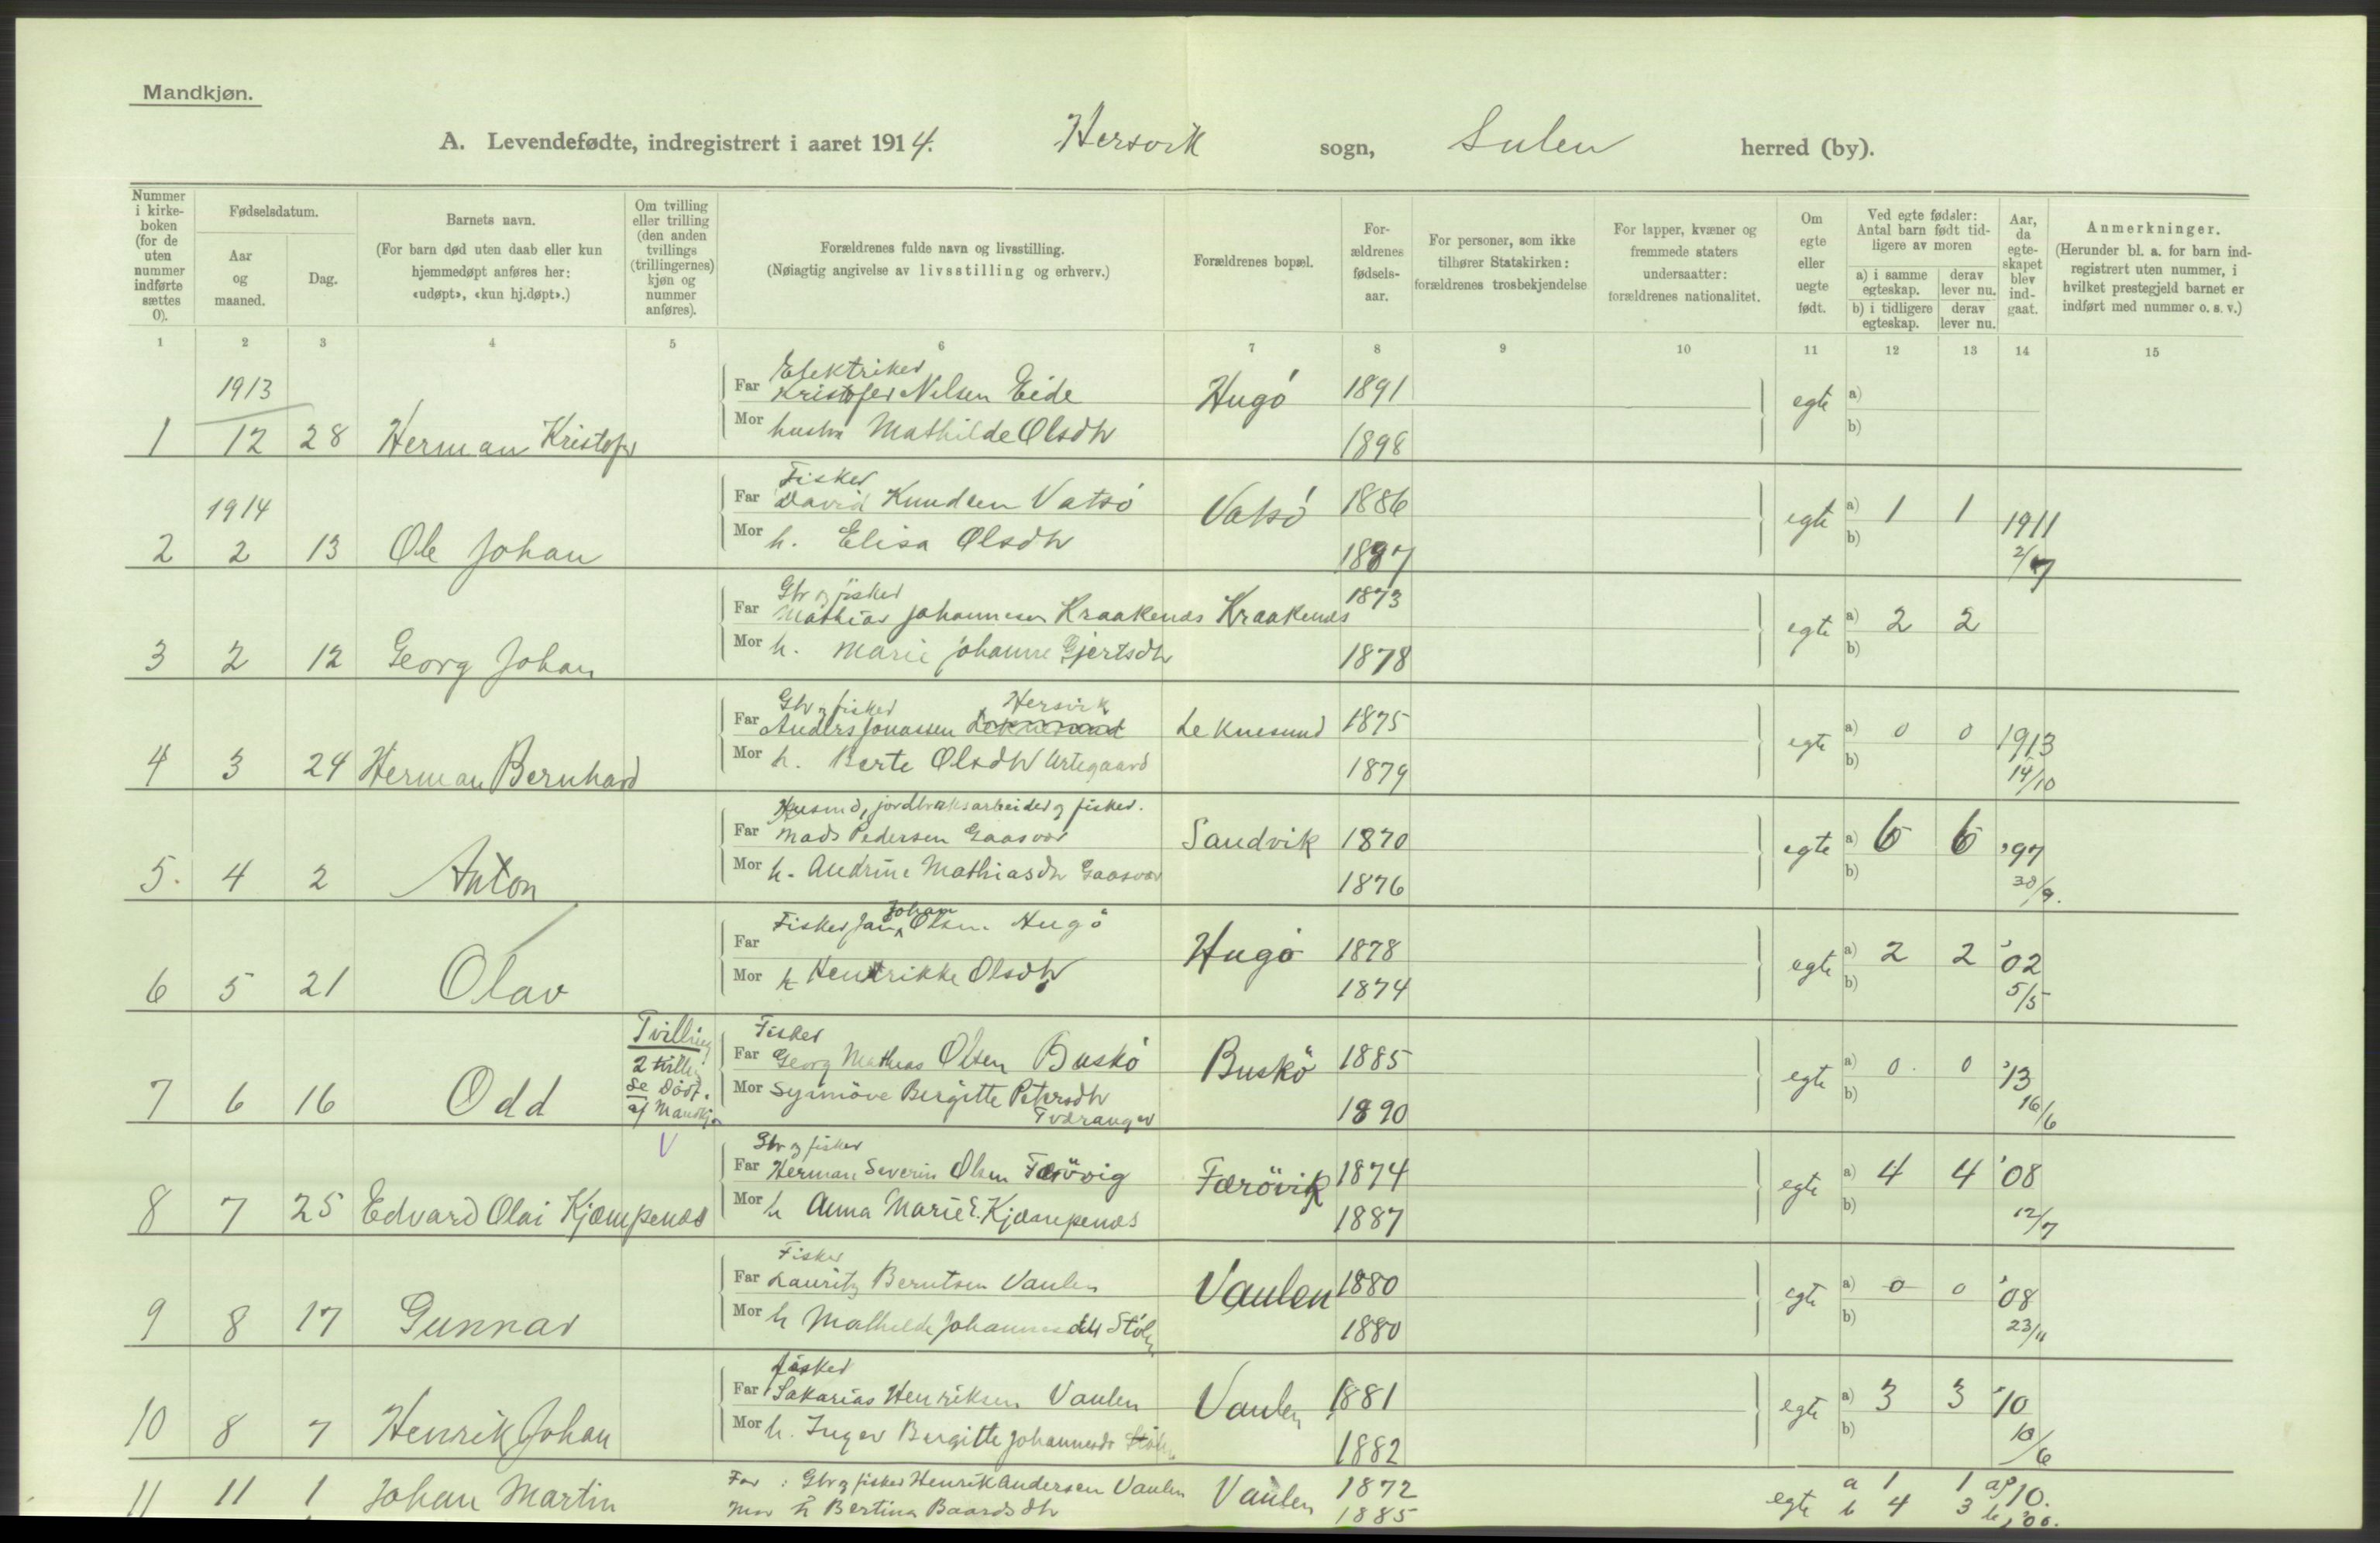 Mandkjøn.
A. Levendefødte, indregistrert i aaret 1914. Hersvik sogn, Sulen herred (by).
Nummer i kirkeboken (for de uten nummer indførte sættes 0).
Fødselsdatum.
Aar og maaned.
Dag.
Barnets navn.
(For barn død uten daab eller kun hjemmedøpt anføres her: «udøpt», «kun hj.døpt».)
Om tvilling eller trilling (den anden tvillings (trillingernes) kjøn og nummer anføres).
Forældrenes fulde navn og livsstilling.
(Nøiagtig angivelse av livsstilling og erhverv.)
Forældrenes bopæl.
Forældrenes fødselsaar.
For personer, som ikke tilhører Statskirken: forældrenes trosbekjendelse
For lapper, kvæner og fremmede staters undersaatter: forældrenes nationalitet.
Om egte eller uegte født.
Ved egte fødsler: Antal barn født tidligere av moren
a) i samme egteskap. derav lever nu.
b) i tidligere egteskap. derav lever nu.
Aar, da egteskapet blev indgaat.
Anmerkninger.
(Herunder bl. a. for barn indregistrert uten nummer, i hvilket prestegjeld barnet er indført med nummer o. s. v.)
1 2 3 4 5 6 7 8 9 10 11 12 13 14 15
Elektriker
1913 Far Kristofer Nilsen Eide Hugö 1891 egte a)
1 12 28 Herman Kristofer Mor hustru Mathilde Olsdtr 1898 b)
Fisker
1914 Far David Knudsen Vatsö Vatsö 1886 egte a) 1 1 1911
2 2 13 Ole Johan Mor h. Elisa Olsdtr 1887 b) 2/7
Gbr og fisker
Far Mathias Johannesen Kraakenæs Kraakenæs 1873 egte a) 2 2
3 2 12 Georg Johan Mor h. Marie Johanne Gjertsdtr 1878 b)
Gbr og fisker Hersvik
Far Anders Jonassen Leknesund 1875 egte a) 0 0 1913
4 3 24 Herman Bernhard Mor h. Berte Olsdtr Utegaard 1879 b) 14/10
Husmd, jordbruksarbeider og fisker.
Far Mads Pedersen Gaasvær Sandvik 1870 egte a) 6 6 '97
5. 4 2 Anton Mor h. Andrine Mathiasdtr Gaasvær 1876 b) 30/9.
Johan
Far Fisker Jan Olsen Hugö Hugö 1878 egte a) 2 2 '02
6 5 21 Olav Mor h Hendrikke Olsdtr 1874 b) 5/5
Tvilling Fisker
2 tvilling Far Georg Mathias Olsen Buskö Buskö 1885 egte a) 0. 0 '13
7 6 16 Odd se Dödf. af Mandkjøn Mor Synnöve Birgitte Petersdtr Tværanger 1890 b) 16/6
V
Gbr og fisker
Far Herman Severin Olsen Færövig Færövik 1874 egte a) 4 4 '08
8 7 25 Edvard Olai Kjæmpenæs Mor h Anna Marie E. Kjæmpenæs 1887 b) 12/7
Fisker
Far Lauritz Berntsen Vaulen Vaulen 1880 egte a) 0 0 '08
9 8 17 Gunnar Mor h Mathilde Johannesdtr Stölen 1880 b) 23/11
fisker
Far Sakarias Henriksen Vaulen Vaulen 1881 egte a) 3 3 '10
10 8 7 Henrik Johan Mor h. Inger Birgitte Johannesdr 1882 b) 10/6
11 11 1 Johan Martin Far : Gbr og fisker Henrik Andersen Vaulen Vaulen 1872 egte a 1 1 a) '10.
Mor h Bertina Baardsdtr 1885 b 4 3 b) '06.